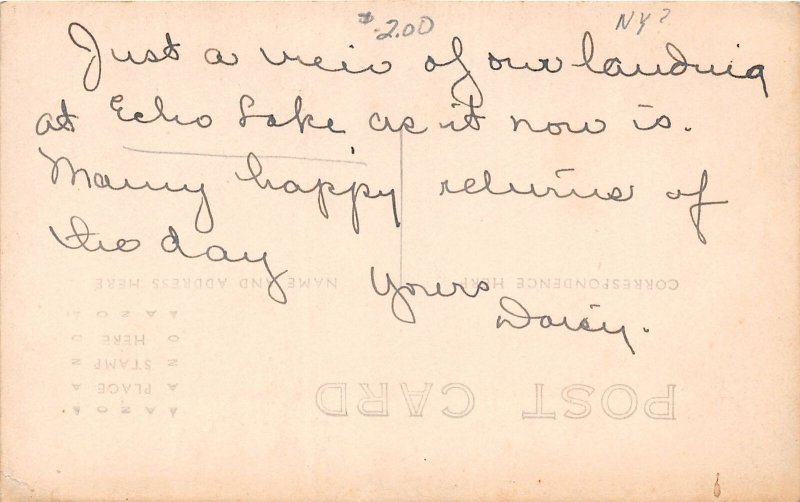 $2.00 NY?
Just a veiw of our landing
at Echo Lake as it now is.
Many happy returns of
the day
Yours
Daisy.
CORRESPONDENCE HERE NAME AND ADDRESS HERE
POST CARD
AZO
PLACE
STAMP
HERE
AZO